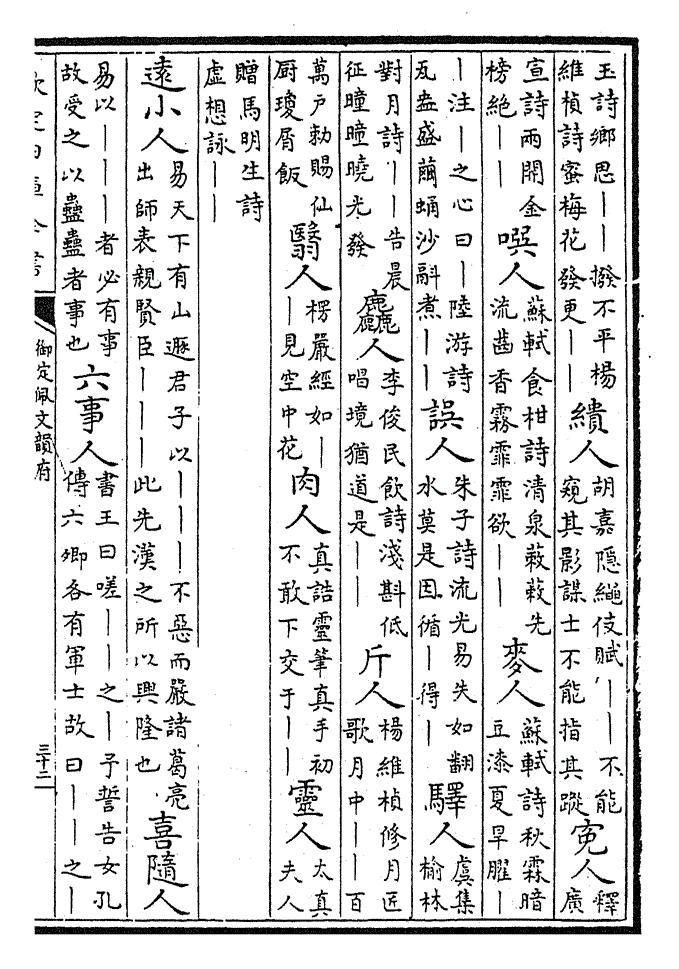 玉詩鄉思——撥不平楊維楨詩蜜梅花發更——繢人胡嘉隱繩伎賦——不能窺其影謀士不能指其蹤寃人釋廣
宣詩兩開金榜絕——噀人蘇軾食柑詩清泉蔌蔌先流齒香霧霏霏欲——麥人蘇軾詩秋霖暗豆漆夏旱臞——
—注—之心曰—陸游詩瓦盎盛繭蛹沙鬴煮——誤人朱子詩流光易失如翻水莫是因循—得—驛人虞集榆林
對月詩——告晨征曈曈曉光發麤人李俊民飲詩淺斟低唱境猶道是——斤人楊維楨修月匠歌月中——百
萬戶勅賜仙厨瓊屑飯翳人楞嚴經如——見空中花肉人真誥靈筆真手初不敢下交于——靈人太真夫人
贈馬明生詩虛想詠——
遠小人易天下有山遯君子以———不惡而嚴諸葛亮出師表親賢臣———此先漢之所以興隆也喜隨人
易以———者必有事故受之以蠱蠱者事也六事人書王曰嗟——之—予誓告女孔傳六卿各有軍士故曰——之—
欽定四庫全書
御定佩文韻府
三十二